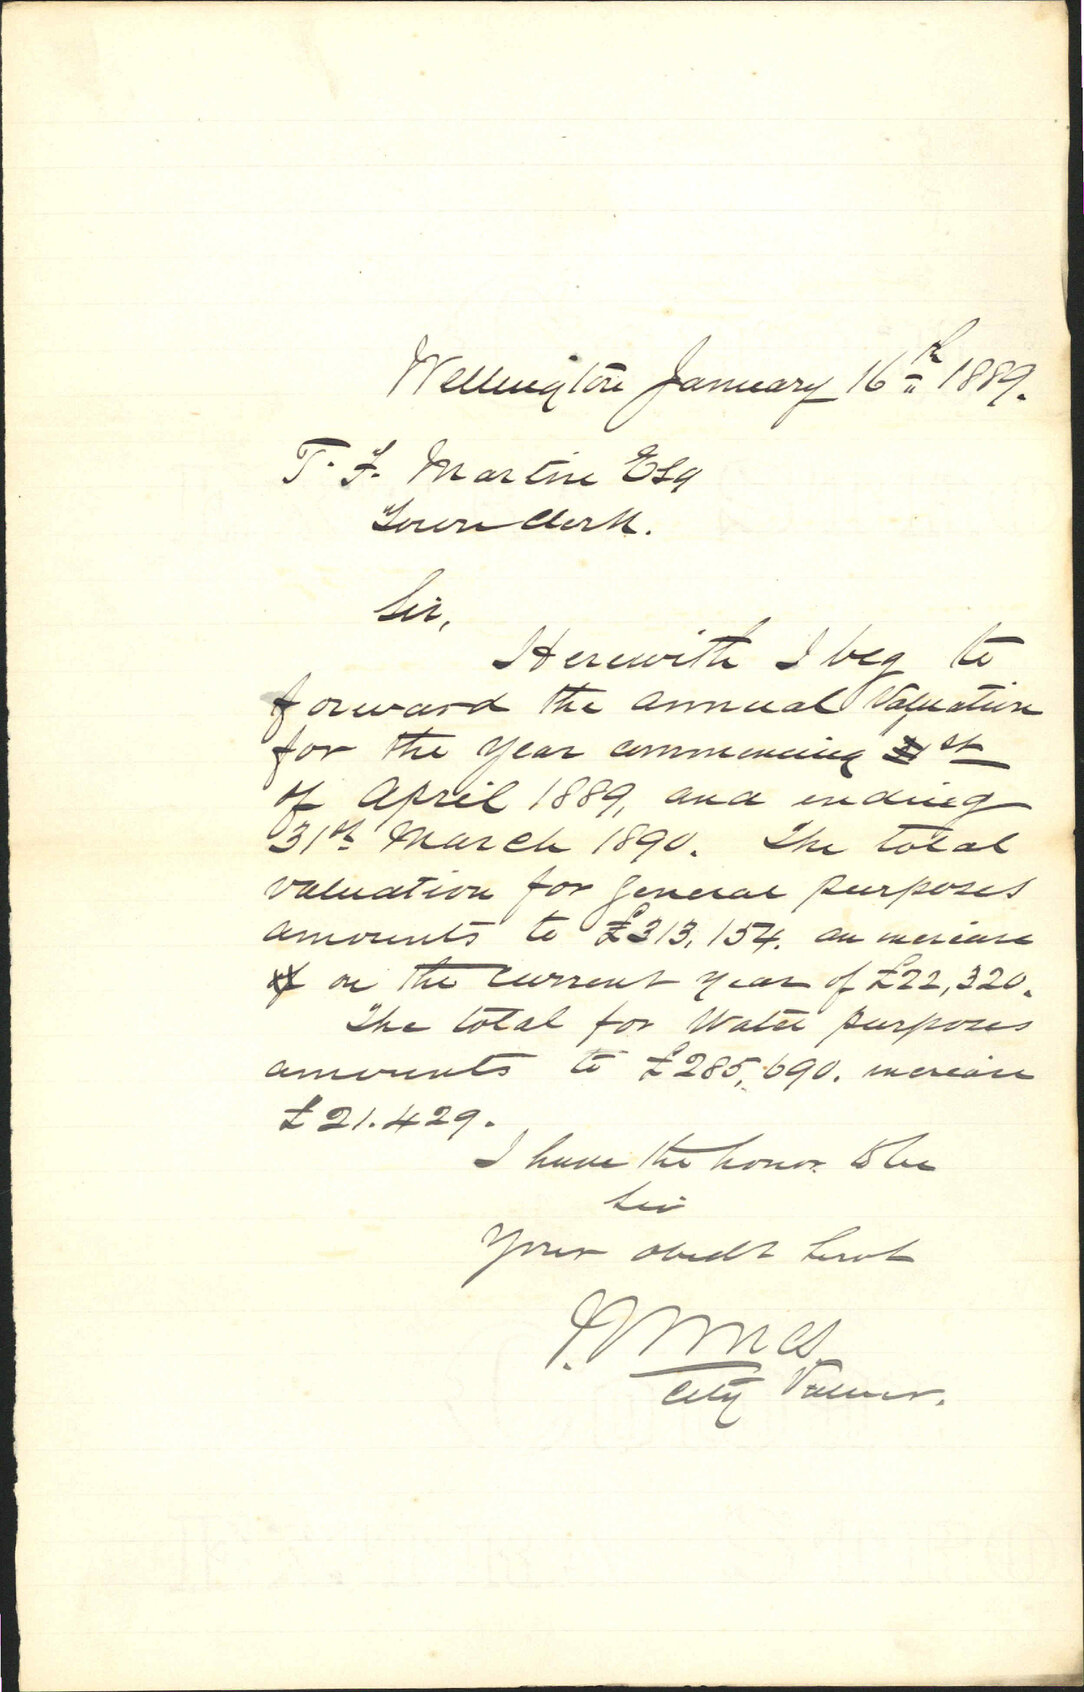 Wellington January 16th 1889.
T. F. Martin Esq
Town Clerk.
Sir,
Herewith I beg to
forward the annual Valuation
for the year commencing 1st
of April 1889, and ending
31st March 1890. The total
valuation for general purposes
amounts to £313,154. an increase
of on the current year of £22,320.
The total for Water purposes
amounts to £285,690. increase
£21.429.
I have the honor to be
Sir
Your obedt Servt
City Valuer.